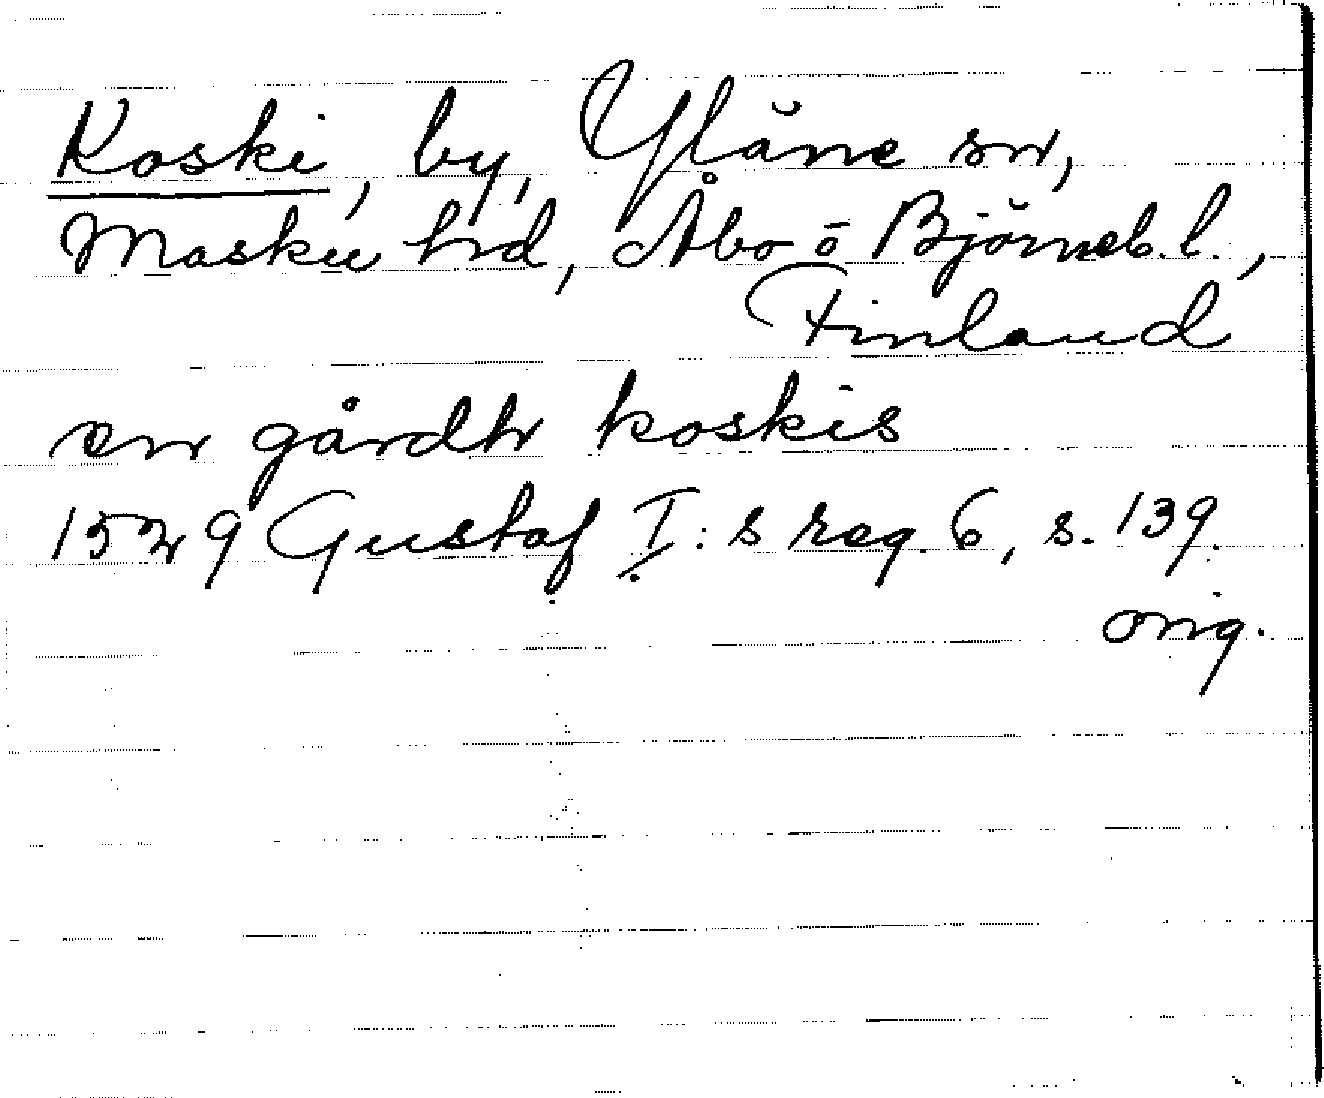 Koski, by, Yläne sn,
Masku hd, Åbo o Björneb. l.,
Finland
en gårdh koskis
1529 Gustaf I:s reg. 6, s. 139.
orig.